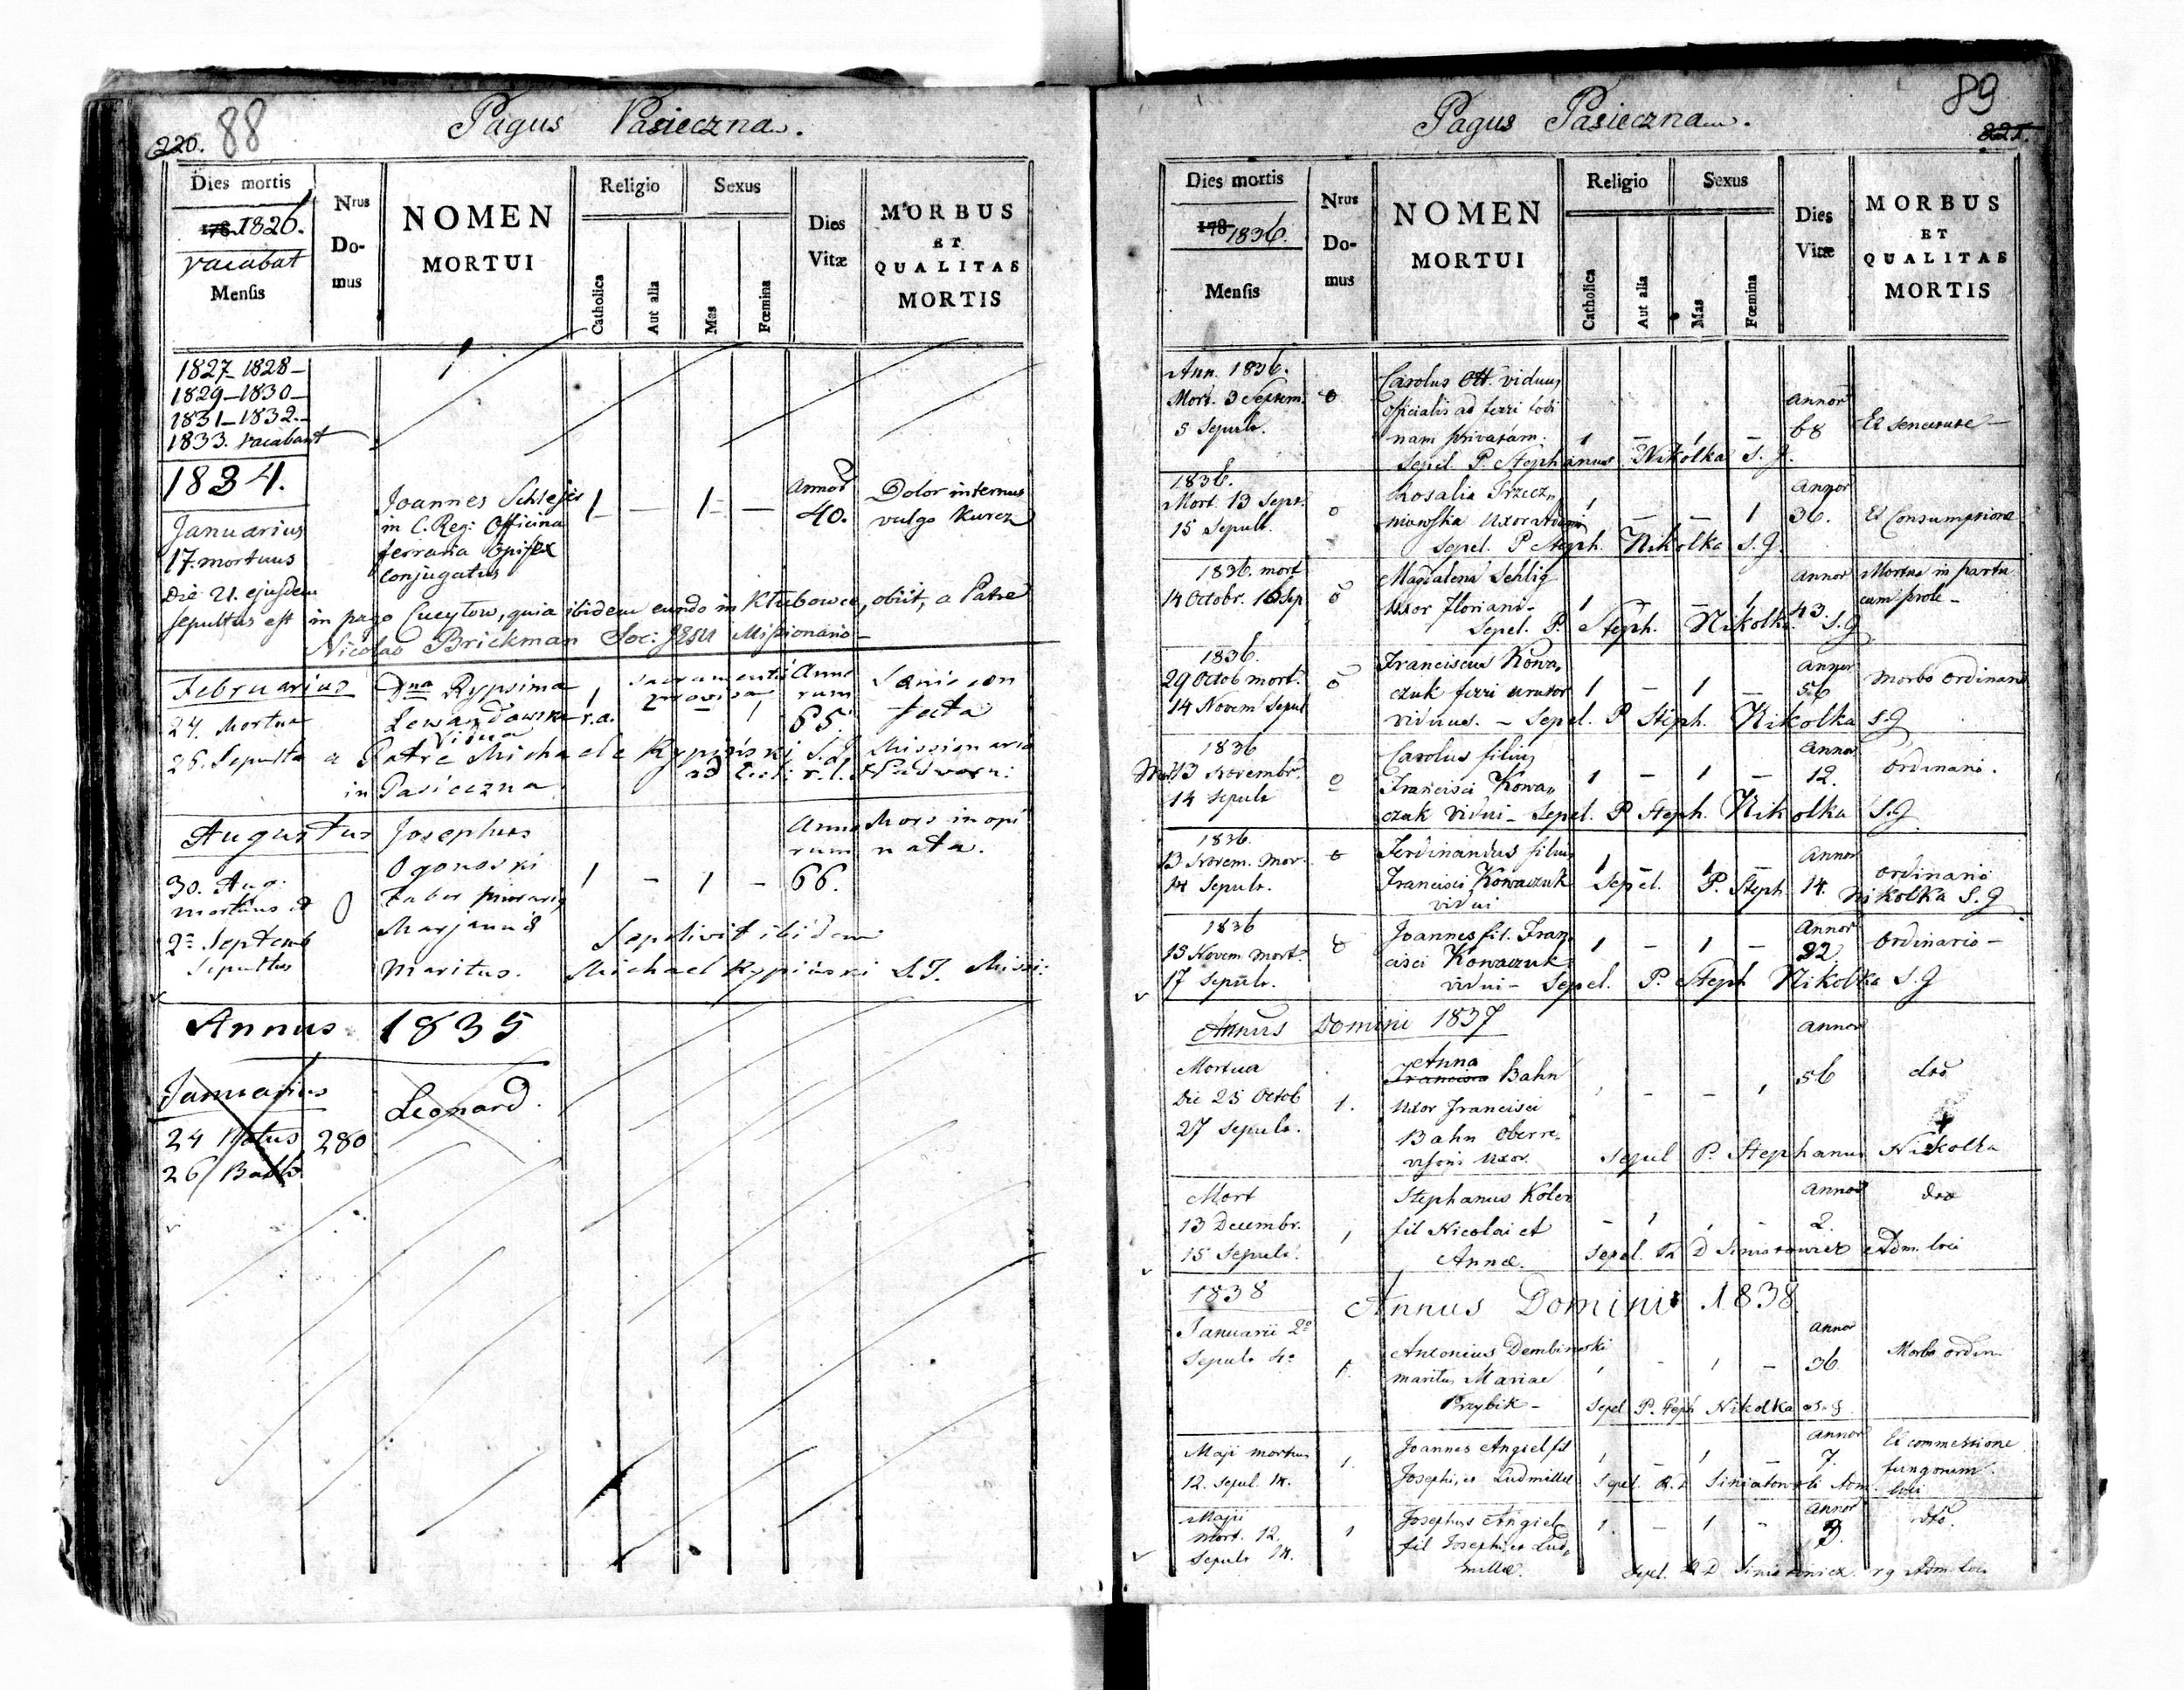 220. 88
Pagus Pasieczna.
Dies mortis
178 1826.
vacabat
Mensis
Nrus
Do-
mus
NOMEN
MORTUI
Religio
Catholica
Aut alia
Sexus
Mas
Fœmina
Dies
Vitæ
MORBUS
ET
QUALITAS
MORTIS
1827_1828_
1829_1830_
1831_1832._
1833. vacabant
1834.
Januarius
17. mortuus
Die 21. ejusdem
Joannes
in C. Reg: Officina
ferraria Opifex
Conjugatus
1 — 1 —
Annor
40.
Dolor internus
vulgo Kurcz
sepultus est in pago Cucytow, quia ibidem eundo in Kłubowce, obiit, a Patre
Nicolao Brickman Soc: JESU Missionario —
Februarius
24. Mortua
26. Sepulta a Patre Michaele Rypiński S.J. Missionario
in Pasieczna ad Eccl: r.l. Nadworn:
Dna Rypsima
Lewandowska r.a.
Vidua
Sacramentis
provisa
1 — — 1
Anno
rum
65.
facta
Augustus
30. Aug:
mortuus
2a Septemb
Sepultus
0
Josephus
Ogonoski
Faber
Marjannis
Maritus.
1 - 1 -
Anno
rum
66.
Mors inopi
nata.
Sepelivit ibidem
Michael Rypiński S.J. Missi:
Annus 1835
Januarius
24 Natus 280
26 Bapt.
Leonard.
89
221.
Pagus Pasieczna.
Dies mortis
178 1836.
Mensis
Nrus
Do-
mus
NOMEN
MORTUI
Religio
Catholica
Aut alia
Sexus
Mas
Fœmina
Dies
Vitæ
MORBUS
ET
QUALITAS
MORTIS
Ann. 1836.
Mort. 3 Septem.
5 Sepult.
0
Carolus Ott. viduus
officialis ad ferri fodi
nam privatam.
1 — 1 —
Annor
68
Ex senectute —
Sepel. P. Stephanus Nikolka S. J.
1836.
Mort. 13 Sept.
15 Sepult.
0
Rosalia Trzecz„
niowska Uxor
1 — — 1
Annor
36.
Ex Consumptione
Sepel. P Steph. Nikolka S.J.
1836. mort
14 Octobr. 16 Sep
0
Magdalena Schlig
Uxor Floriani —
1 — 1
Annor
43.
Mortua in partu
cum prole —
Sepel. P. Steph. Nikolka S.J
1836.
29 Octob mort.
14 Novem Sepul
0
Franciscus Kowa„
czuk ferri
viduus. — Sepel. P Steph. Nikolka S.J
1 — 1 —
Annor
56
Morbo Ordinario
1836
Mort 13 Novembr.
14 Sepult
0
Carolus filius
Francisci Kowa„
czuk vidui — Sepel. P Steph. Nikolka S.J
1 — 1 —
Annor
12.
Ordinario.
1836.
13 Novem. Mor.
14 Sepult.
0
Ferdinandus filius
Francisci Kowaczuk
vidui
1 — 1 —
Annor
14.
Ordinario
Sepel. P. Steph. Nikolka S.J
1836
15 Novem. Mort.
17 Sepult.
0
Joannes fil. Fran„
cisci Kowaczuk
vidui — Sepel. P. Steph Nikolka S.J
1 — 1 —
Annor
22
Ordinario —
Annus Domini 1837
Mortua
Die 25 Octob
27 Sepult.
1.
Anna
Francisca Bahn
Uxor Francisci
Bahn Oberre„
visoris Uxor.
1 - - 1
Annor
56
dto
Sepel P. Stephanus Nikolka
Mort
13 Decembr.
15 Sepult.
1
Stephanus Koler
fil Nicolai et
Annæ.
- 1 1 -
Annor
2.
dto
Sepel. D Adm. loci
1838
Annus Domini 1838.
Januarii 2o
Sepult 4o
1.
Antonius Dembinski
maritus Mariae
Przybik —
1 - 1 -
Annor
36
Morbo ordin.
Sepel P. Steph Nikolka S.J.
Maji mortuus
12. Sepul. 14.
1.
Joannes Angiel fil
Josephi, et Ludmillæ
1 - 1 -
Annor
7.
Ex commestione
fungorum.
Sepel. R. D Adm. loci
Maji
Mort. 12.
Sepult 14.
1
Josephus Angiel
fil Josephi, et Lud„
millæ.
1. - 1 -
Annor
3.
dto.
Sepel. R D Adm loci